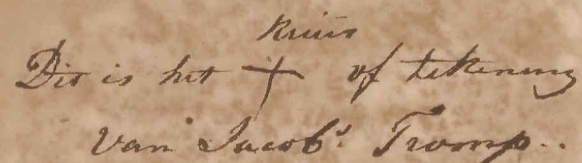 Kruis
Dit is het + of tekening
van Jacob.s Tromp..